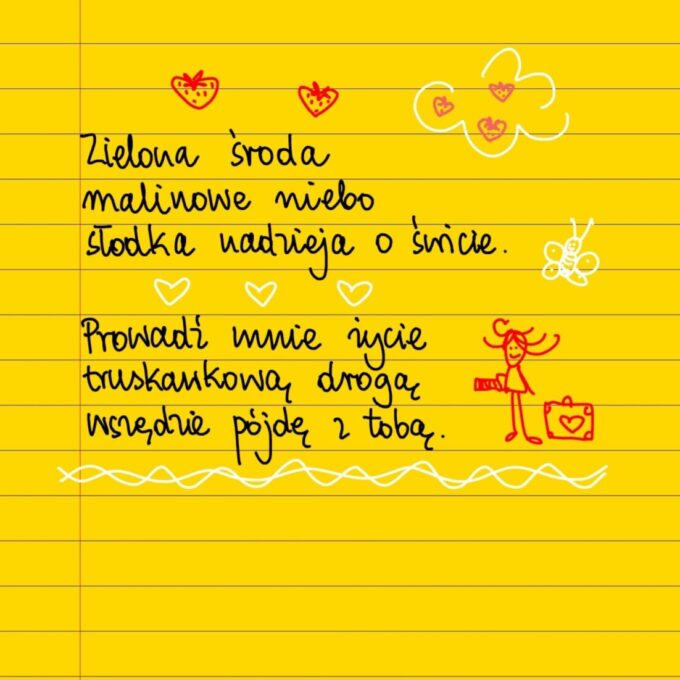 Zielona środa
malinowe niebo
słodka nadzieja o świcie.
Prowadź mnie życie
truskawkową drogą
wszędzie pójdę z tobą.